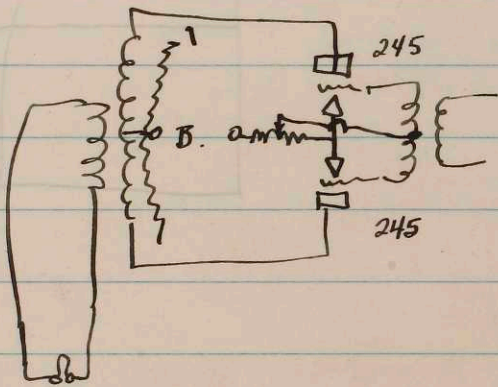 245
B.
245